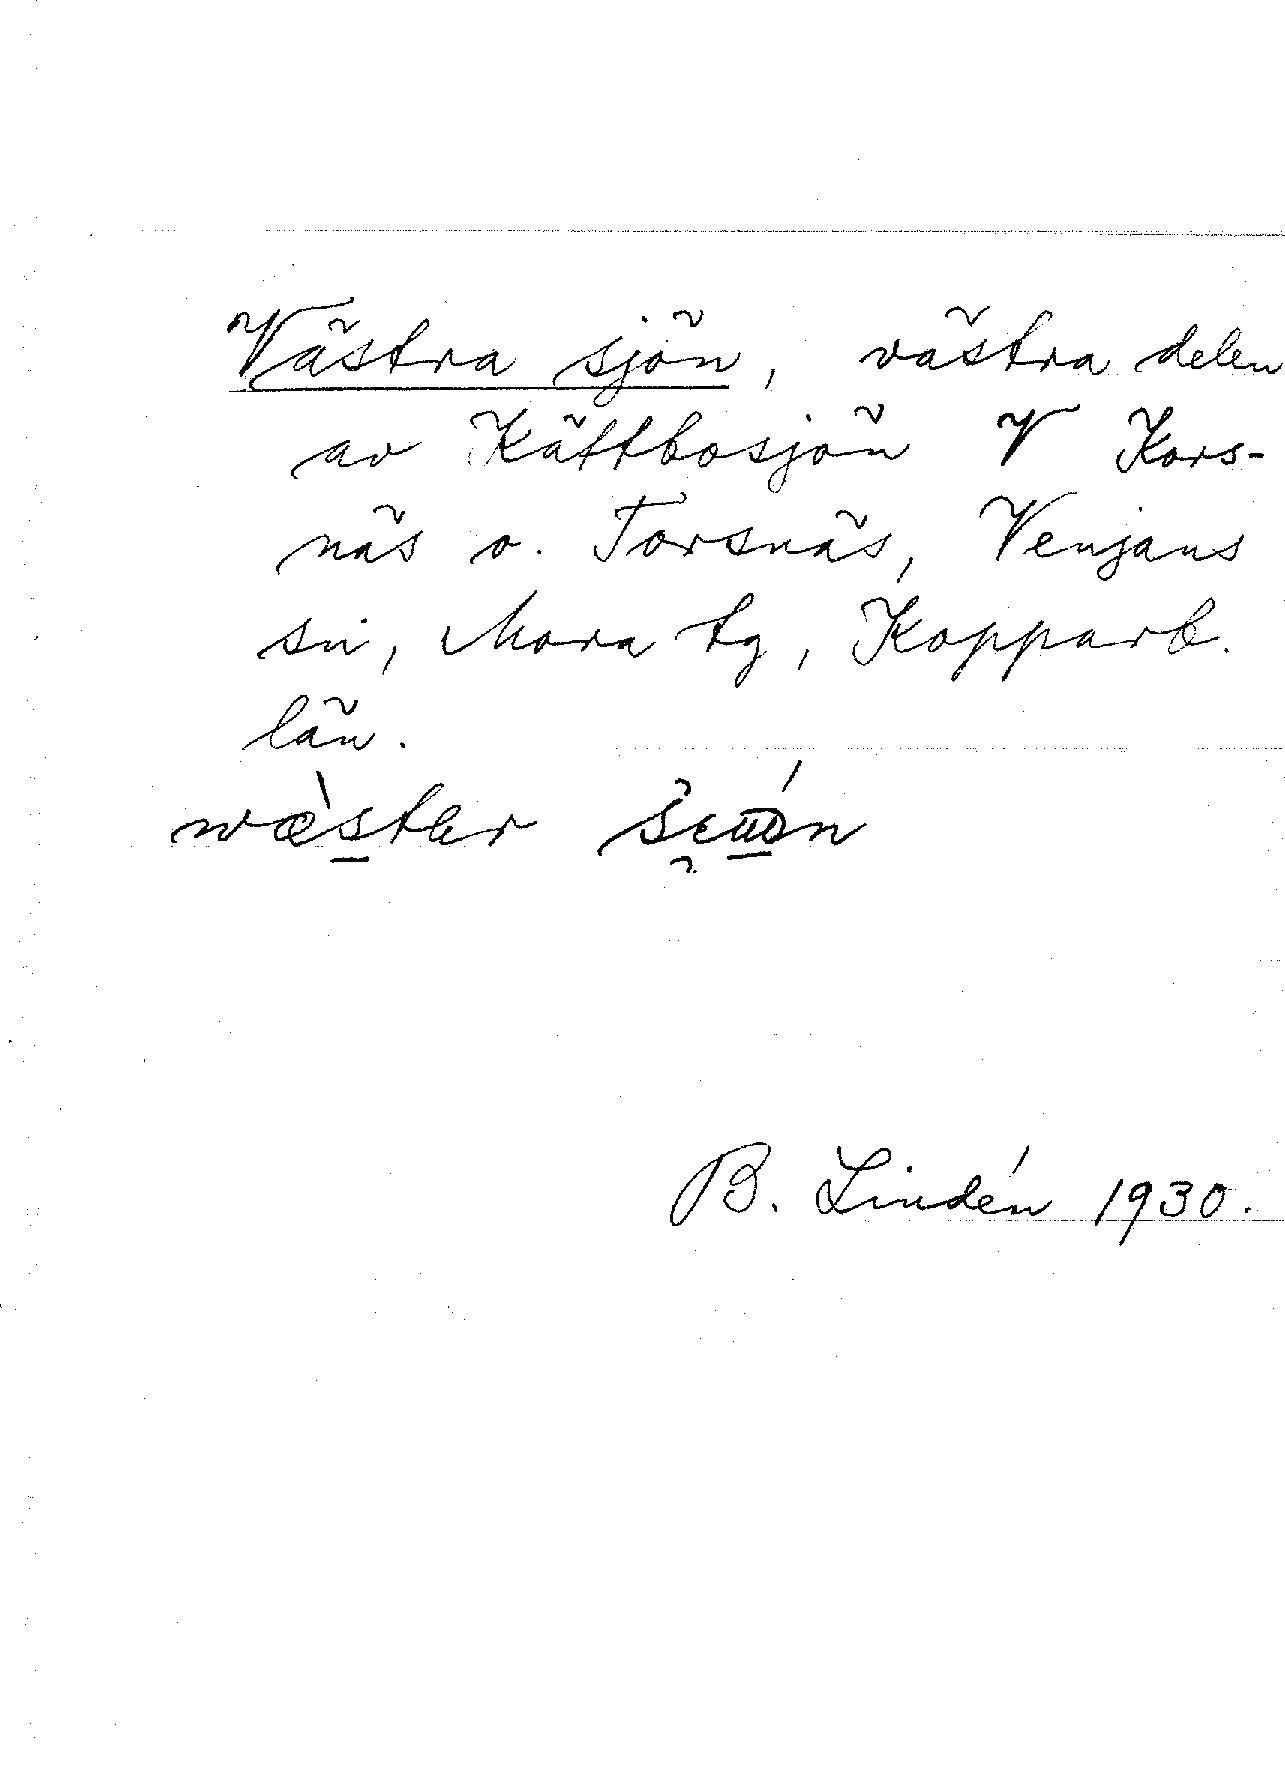 Västra sjön, västra delen
av Kättbosjön V Kors-
näs o. Torsnäs, Venjans
sn, Mora tg, Kopparb.
län.
wæ̀ster
B. Lindén 1930.